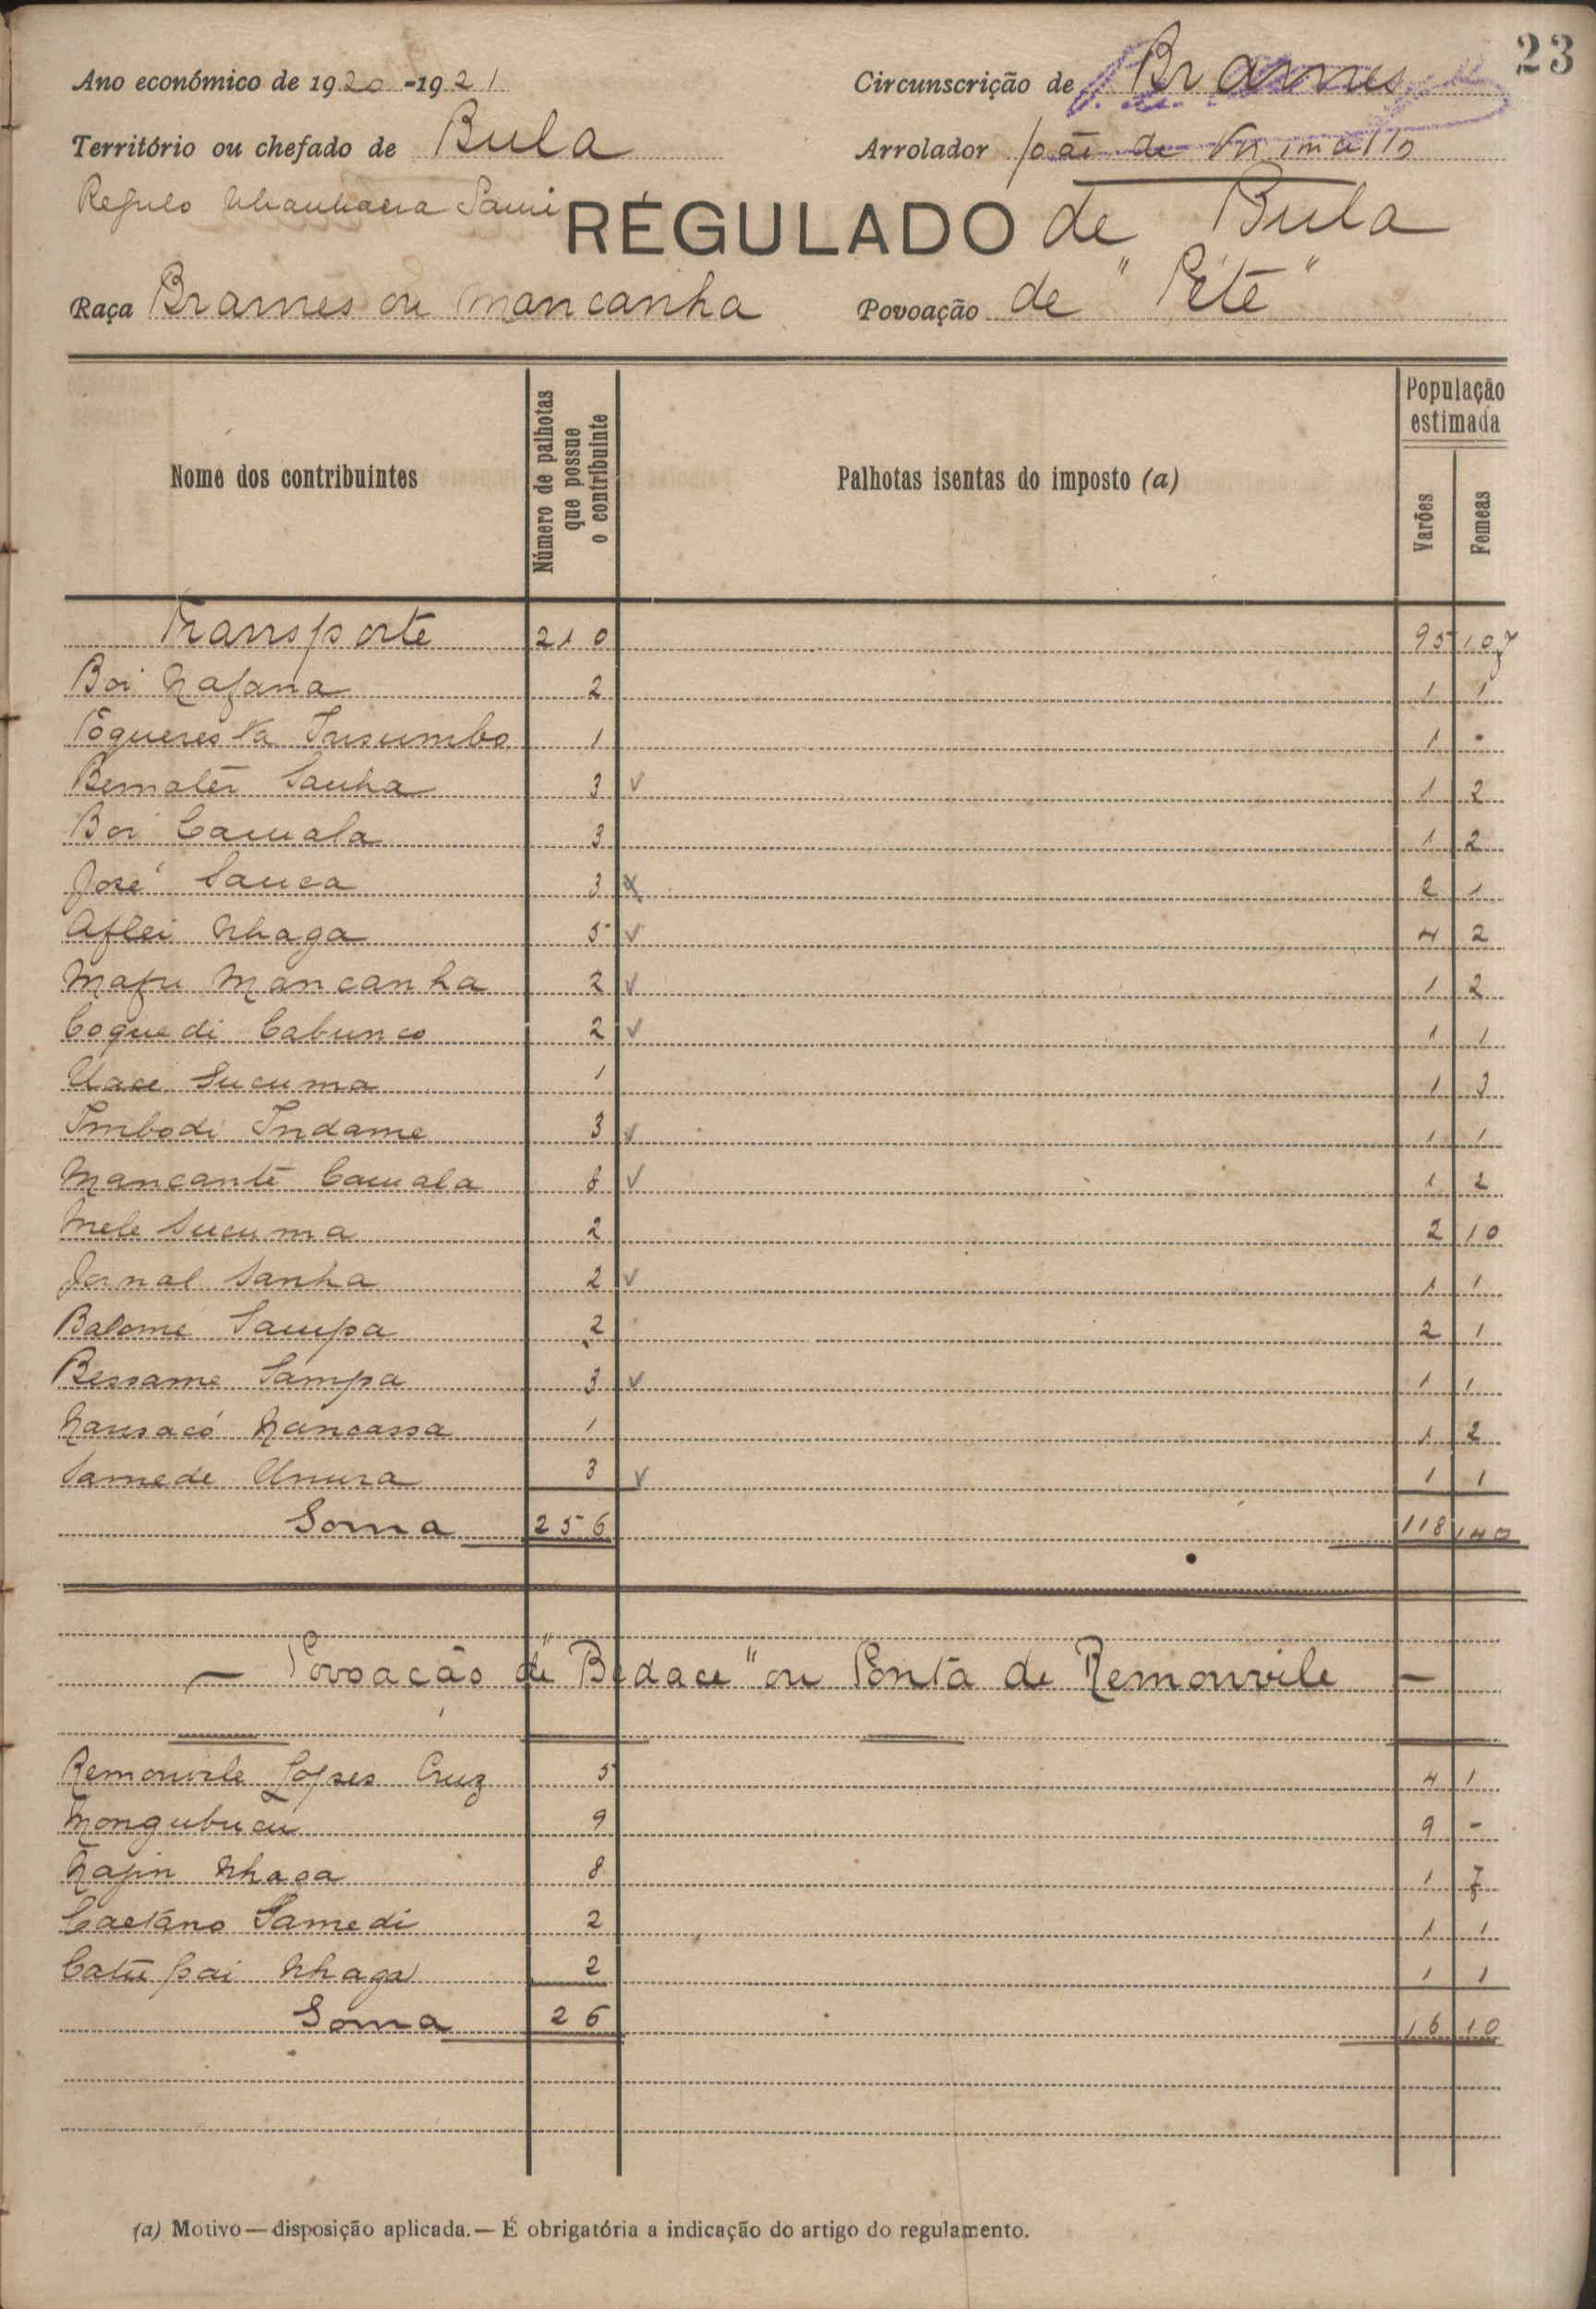 23
Ano económico de 1920-1921
Circunscrição de Brames
Território ou chefado de Bula
Arrolador João de
Regulo
RÉGULADO de Bula
Raça Brames ou Mancanha
Povoação de "Pété"
Nome dos contribuintes
Número de palhotas que possue o contribuinte
Palhotas isentas do imposto (a)
População estimada
Varões
Femeas
Transporte 210 95 107
Boi Nafana 2 1 1
1 1 -
Sanha 3 v 1 2
Boi Camala 3 1 2
José Sanca 3 x 2 1
Aflei Nhaga 5 v 4 2
Mafu Mancanha 2 v 1 2
Coquedi Cabunco 2 v 1 1
Uace Sucuma 1 1 3
Imbodi Indame 3 v 1 1
Mancanté Camala 8 v 1 2
Mele Sucuma 2 2 10
Jornal Sanha 2 v 1 1
Balomé Sampa 2 2 1
Bessame Sampa 3 v 1 1
Nansacó Nancassa 1 1 2
Samede 3 v 1 1
Soma 256 118 140
— Povoação de "Bedace" ou Ponta de Remonvile —
Remonvile Lopses Cruz 5 4 1
Mongubucu 9 9 -
Nafin Nhaga 8 1 7
Caetano Samedi 2 1 1
Catupai Nhaga 2 1 1
Soma 26 16 10
(a) Motivo — disposição aplicada. — É obrigatória a indicação do artigo do regulamento.